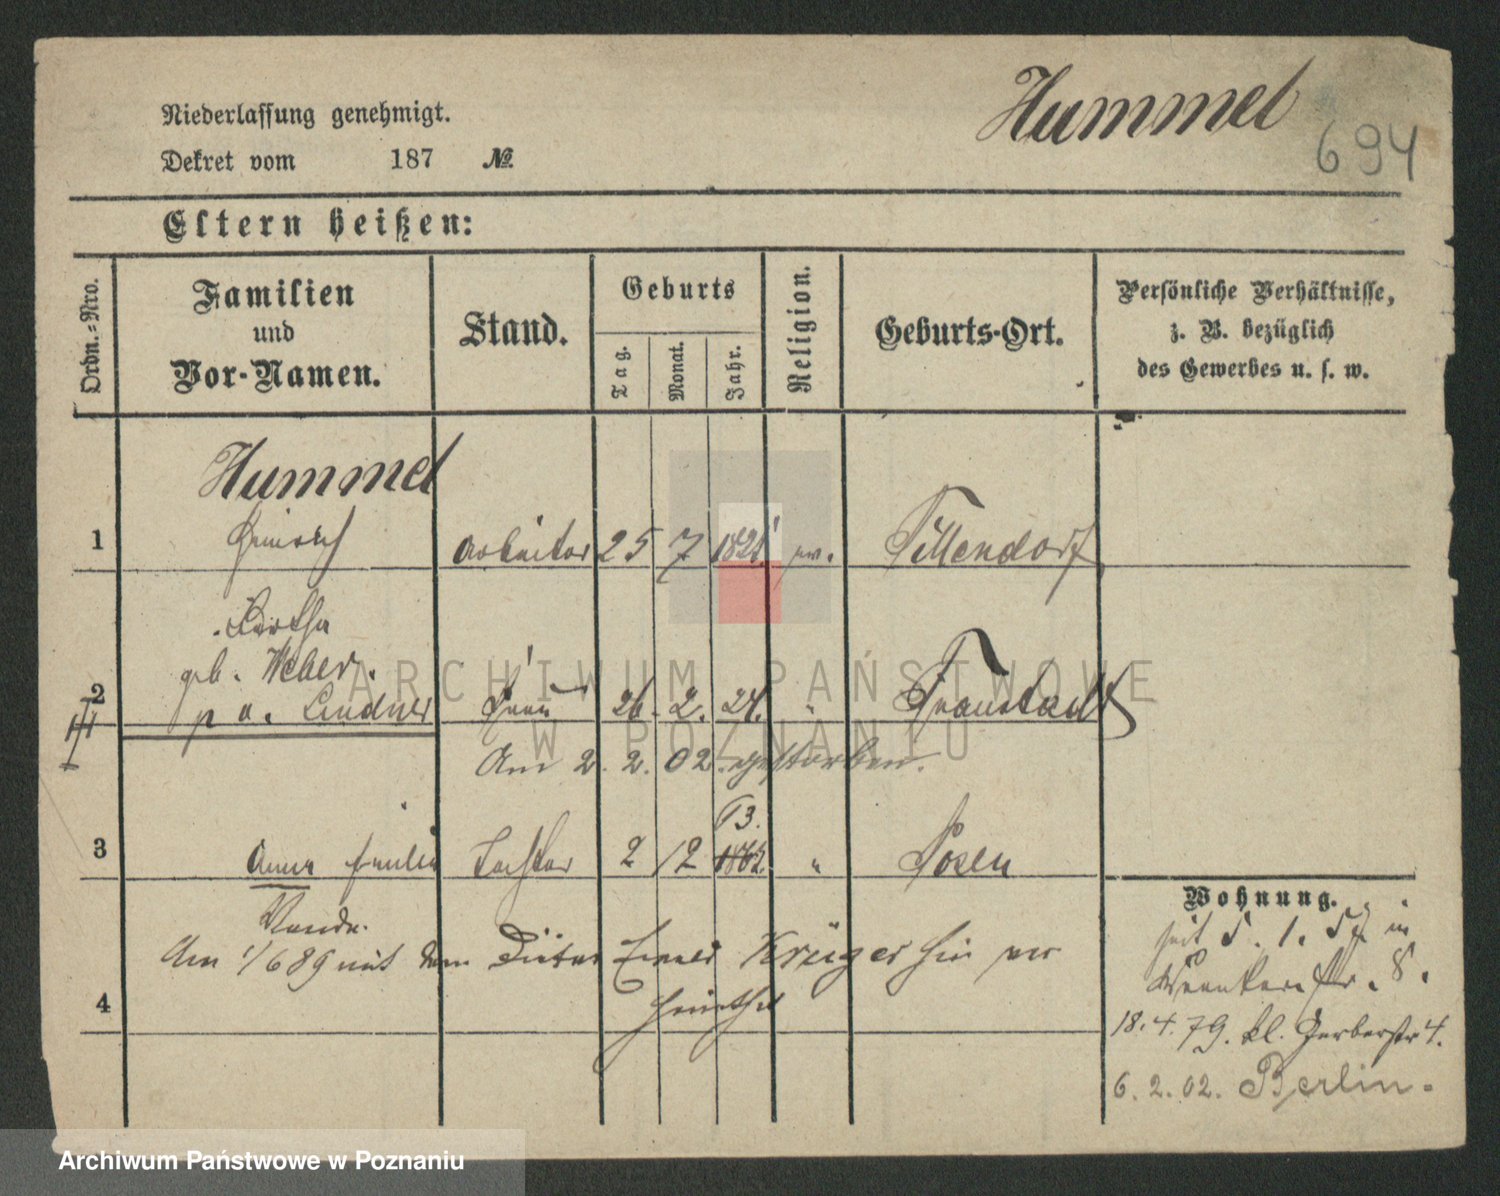 Niederlassung genehmigt.
Dekret vom 187 №
Hummel
694
Eltern heißen:
Ordn.-Nro.
Familien
und
Vor-Namen.
Stand.
Geburts
Tag.
Monat.
Jahr.
Religion.
Geburts-Ort.
Persönliche Verhältnisse,
z. B. bezüglich
des Gewerbes u. s. w.
Hummel
1 Heinrich Arbeiter 25 7 ev. Tillendorf
Bertha
geb. Weber.
2 p v. Lindner Frau 26. 2. 24. " Fraustadt
Am 2. 2. 02 gestorben.
73.
3 Anna Emilie Tochter 2 12 " Posen
Am 1/6 89 mit dem Krüger hier ver
4 heirathet
Wohnung.
seit 5. 1. 57 in
str. 8.
18. 4. 79. kl. Gerberstr 4.
6. 2. 02. Berlin.
ARCHIWUM PAŃSTWOWE
W POZNANIU
Archiwum Państwowe w Poznaniu